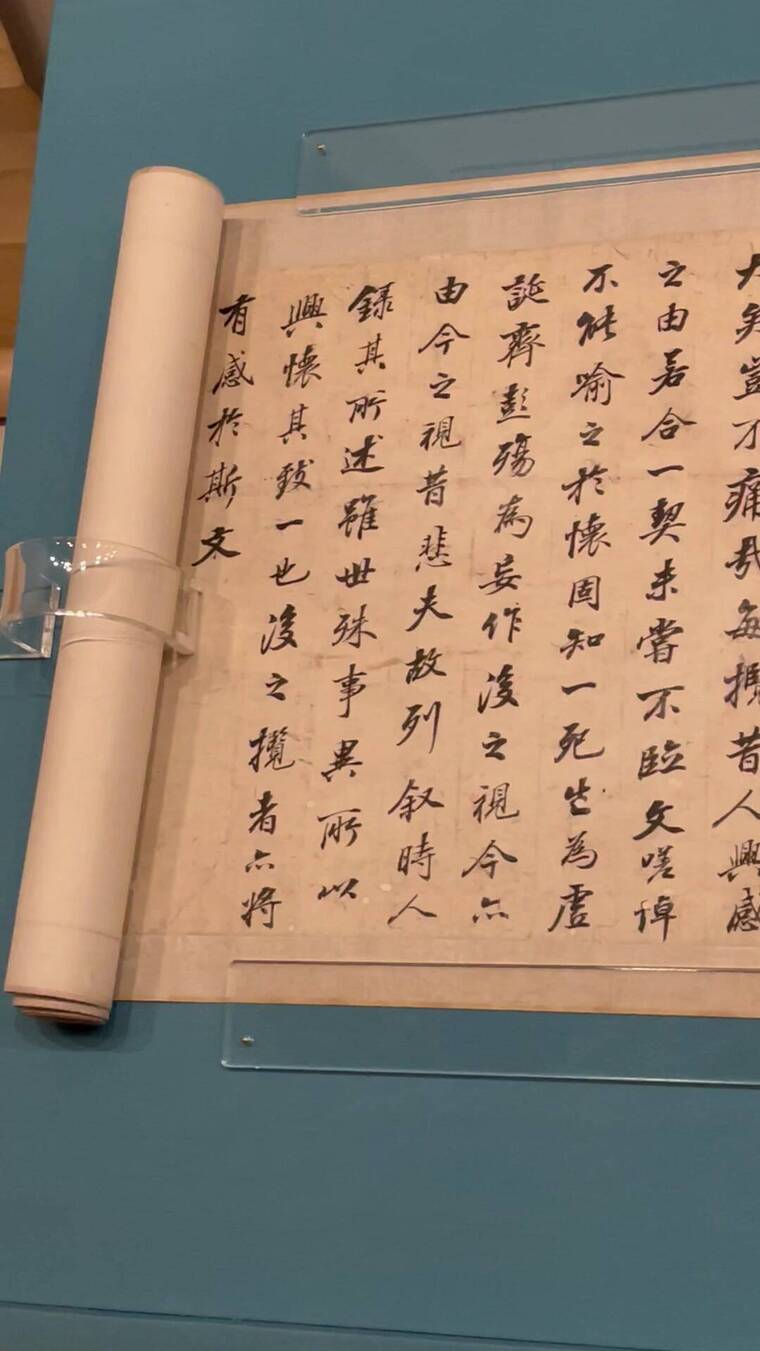 大矣豈不痛哉每攬昔人興感
之由若合一契未嘗不臨文嗟悼
不能喻之於懷固知一死生為虛
誕齊彭殤為妄作後之視今亦
由今之視昔悲夫故列叙時人
錄其所述雖世殊事異所以
興懷其致一也後之攬者亦將
有感於斯文